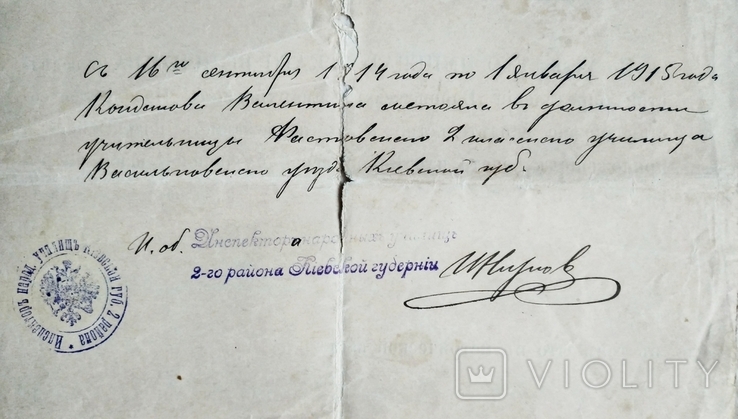 Съ 16го сентября 1914 года по 1 января 1915 года
Валентина состояла въ должности
учительницы Фастовскаго 2 класснаго училища
Васильковскаго уѣзда Кіевской губ.
И. об. Инспектора народныхъ училищъ
2-го района Кіевской губерніи
Инспекторъ народ. училищъ Кіевской губ. 2 района
VIOLITY